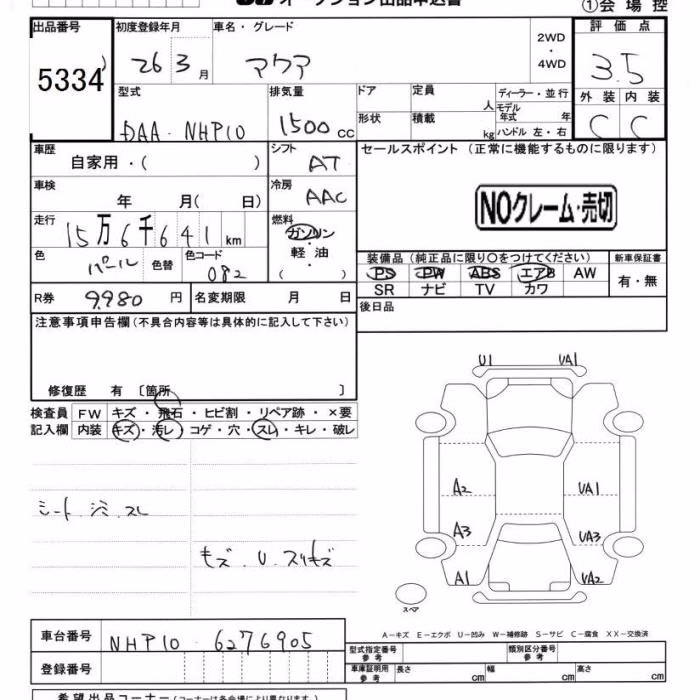 オークション出品申込書
①会場控
出品番号 初度登録年月 車名・グレード 2WD・4WD 評価点
5334 26 3月 アクア 3.5
型式 排気量 ドア 定員 人 ディーラー・並行 外装 内装
DAA-NHP10 1500cc 形状 積載 kg モデル年式 年 ハンドル 左・右 C C
車歴 シフト セールスポイント (正常に機能するものに限ります)
自家用・( ) AT
車検 冷房
年 月( 日) AAC
NOクレーム・売切
走行 燃料
15万6千641km ガソリン
軽油
( )
色 パール 色替 色コード 082
装備品 (純正品に限り○をつけてください) 新車保証書
PS PW ABS エアB AW 有・無
SR ナビ TV カワ
R券 9980円 名変期限 月 日
後日品
注意事項申告欄(不具合内容等は具体的に記入して下さい)
修復歴 有 〔箇所 〕
検査員 FW キズ・飛石・ヒビ割・リペア跡・×要
記入欄 内装 キズ・汚レ・コゲ・穴・スレ・キレ・破レ
シート シミ スレ
キズ U スリキズ
U1 UA1
A2 UA1
A3 UA3
A1 UA2
スペア
A−キズ E−エクボ U−凹み W−補修跡 S−サビ C−腐食 XX−交換済
車台番号 NHP10-6276905
型式指定番号 参考 類別区分番号 参考
登録番号
車庫証明用 参考 長さ cm 幅 cm 高さ cm
希望出品コーナー(コーナーは各会場により異なります)